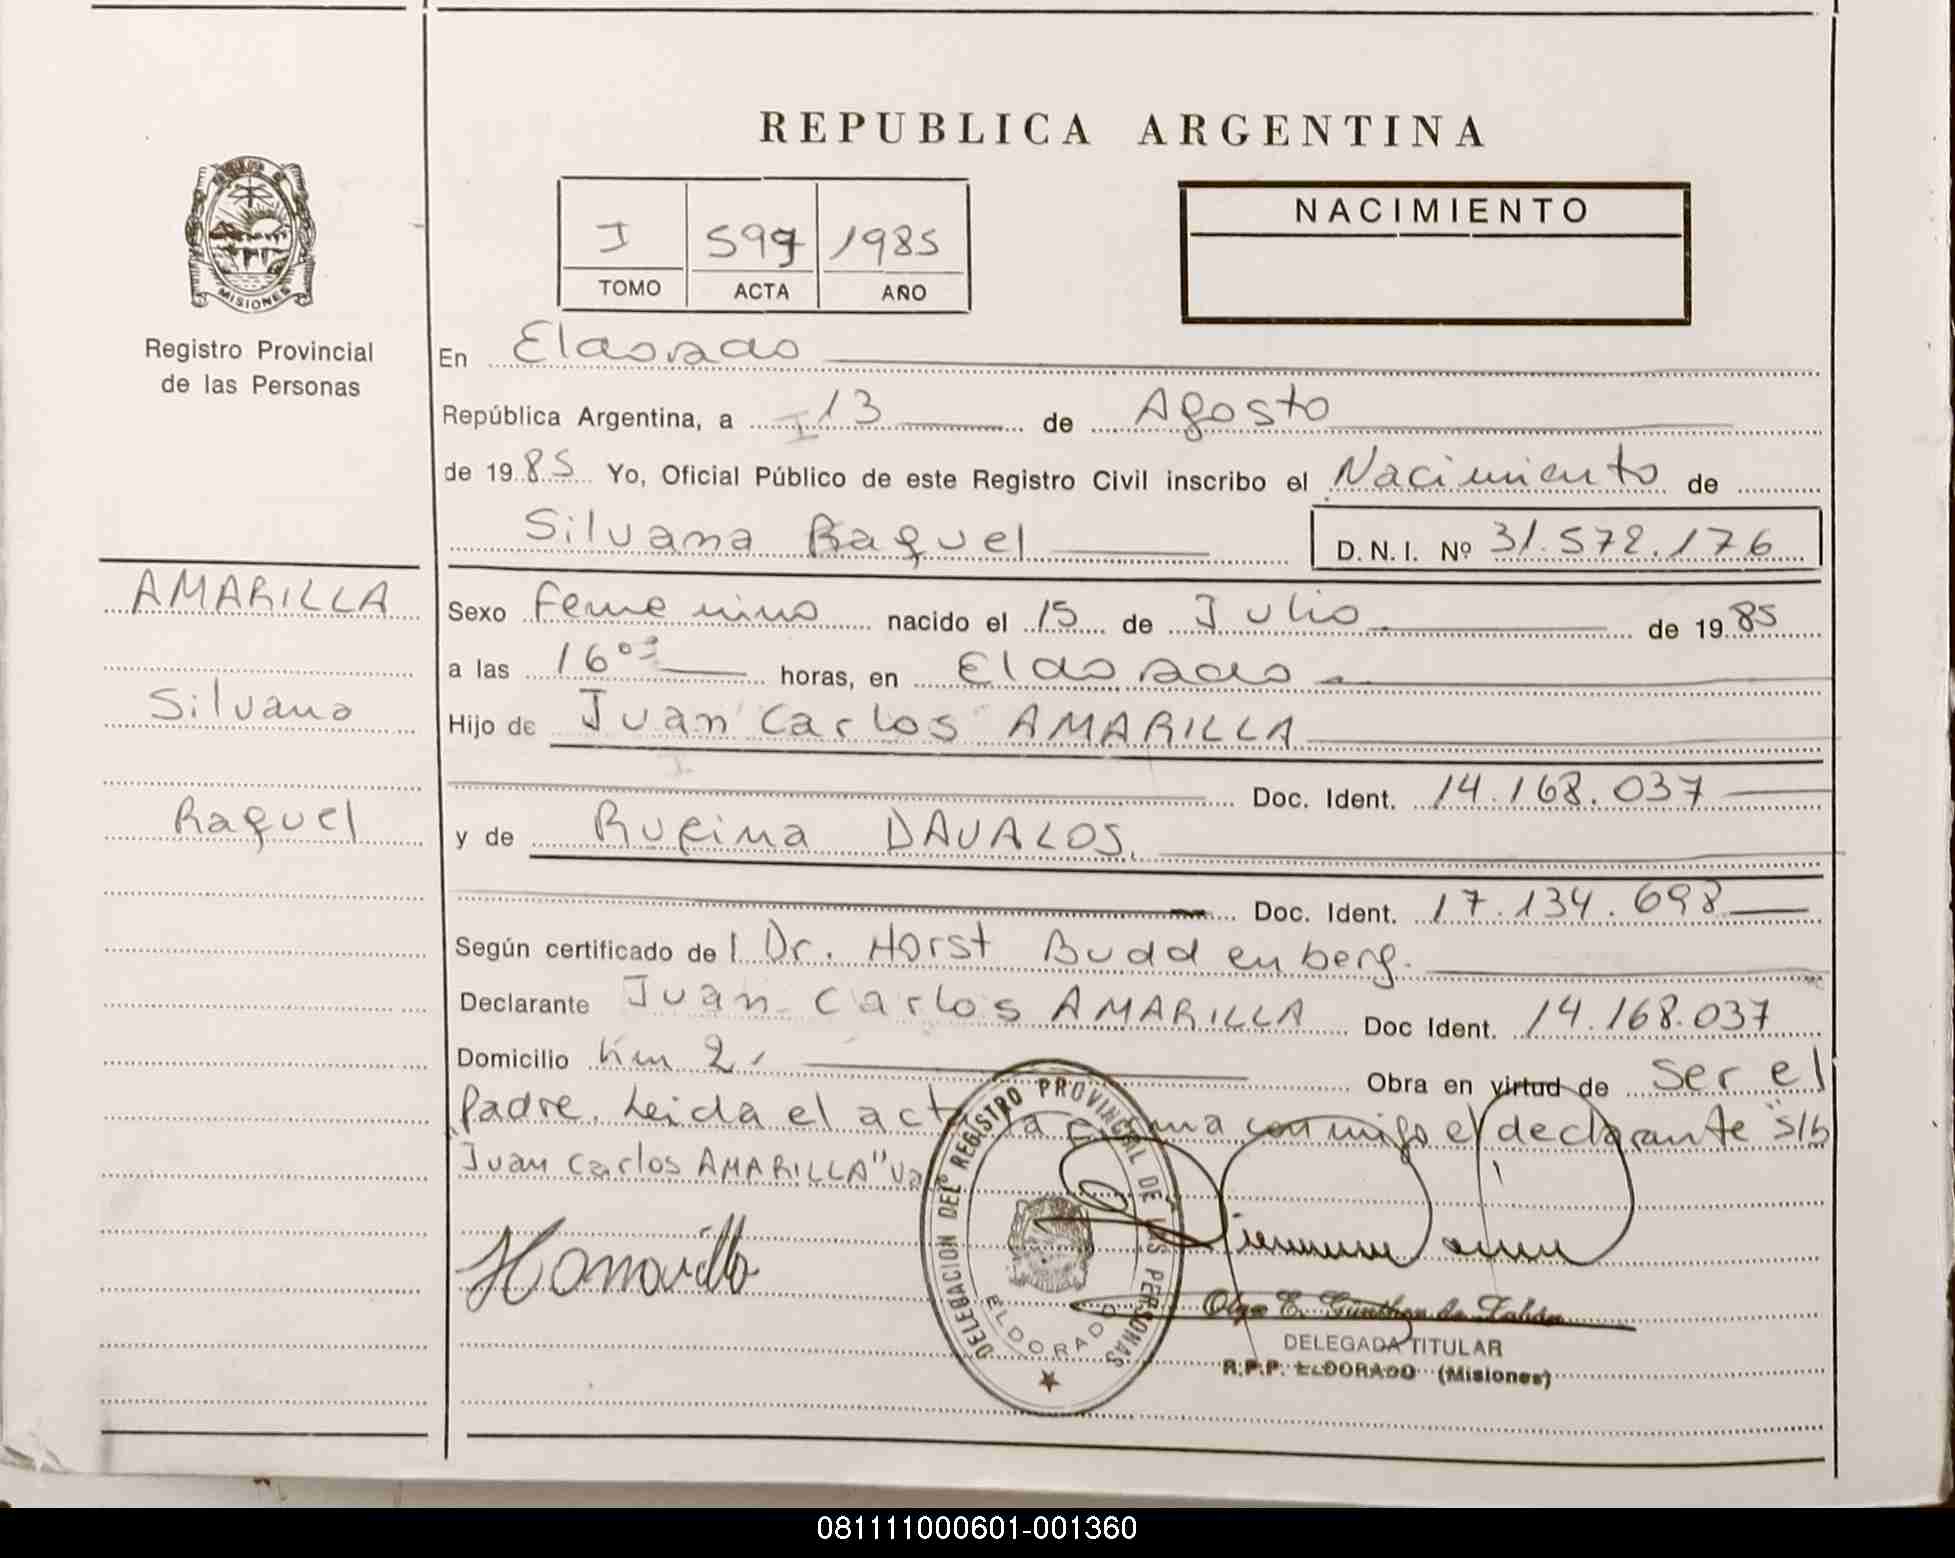 REPUBLICA ARGENTINA
I 597 1985
TOMO ACTA AÑO
NACIMIENTO
MISIONES
Registro Provincial
de las Personas
AMARILLA
Silvana
Raquel
En Eldorado
República Argentina, a 13 de Agosto
de 1985 Yo, Oficial Público de este Registro Civil inscribo el Nacimiento de
Silvana Raquel D.N.I. Nº 31.572.176
Sexo Femenino nacido el 15 de Julio de 1985
a las 16 horas, en Eldorado
Hijo de Juan Carlos AMARILLA
Doc. Ident. 14.168.037
y de Rufina DAVALOS.
Doc. Ident. 17.134.698
Según certificado del Dr. Horst Buddenberg.
Declarante Juan Carlos AMARILLA Doc Ident. 14.168.037
Domicilio Km 2, Obra en virtud de Ser el
Padre. Leida el acta la firma conmigo el declarante "s/b
Juan Carlos AMARILLA"
DELEGACION DEL REGISTRO PROVINCIAL DE LAS PERSONAS
ELDORADO
Olga E.
DELEGADA TITULAR
R.P.P. ELDORADO (Misiones)
081111000601-001360